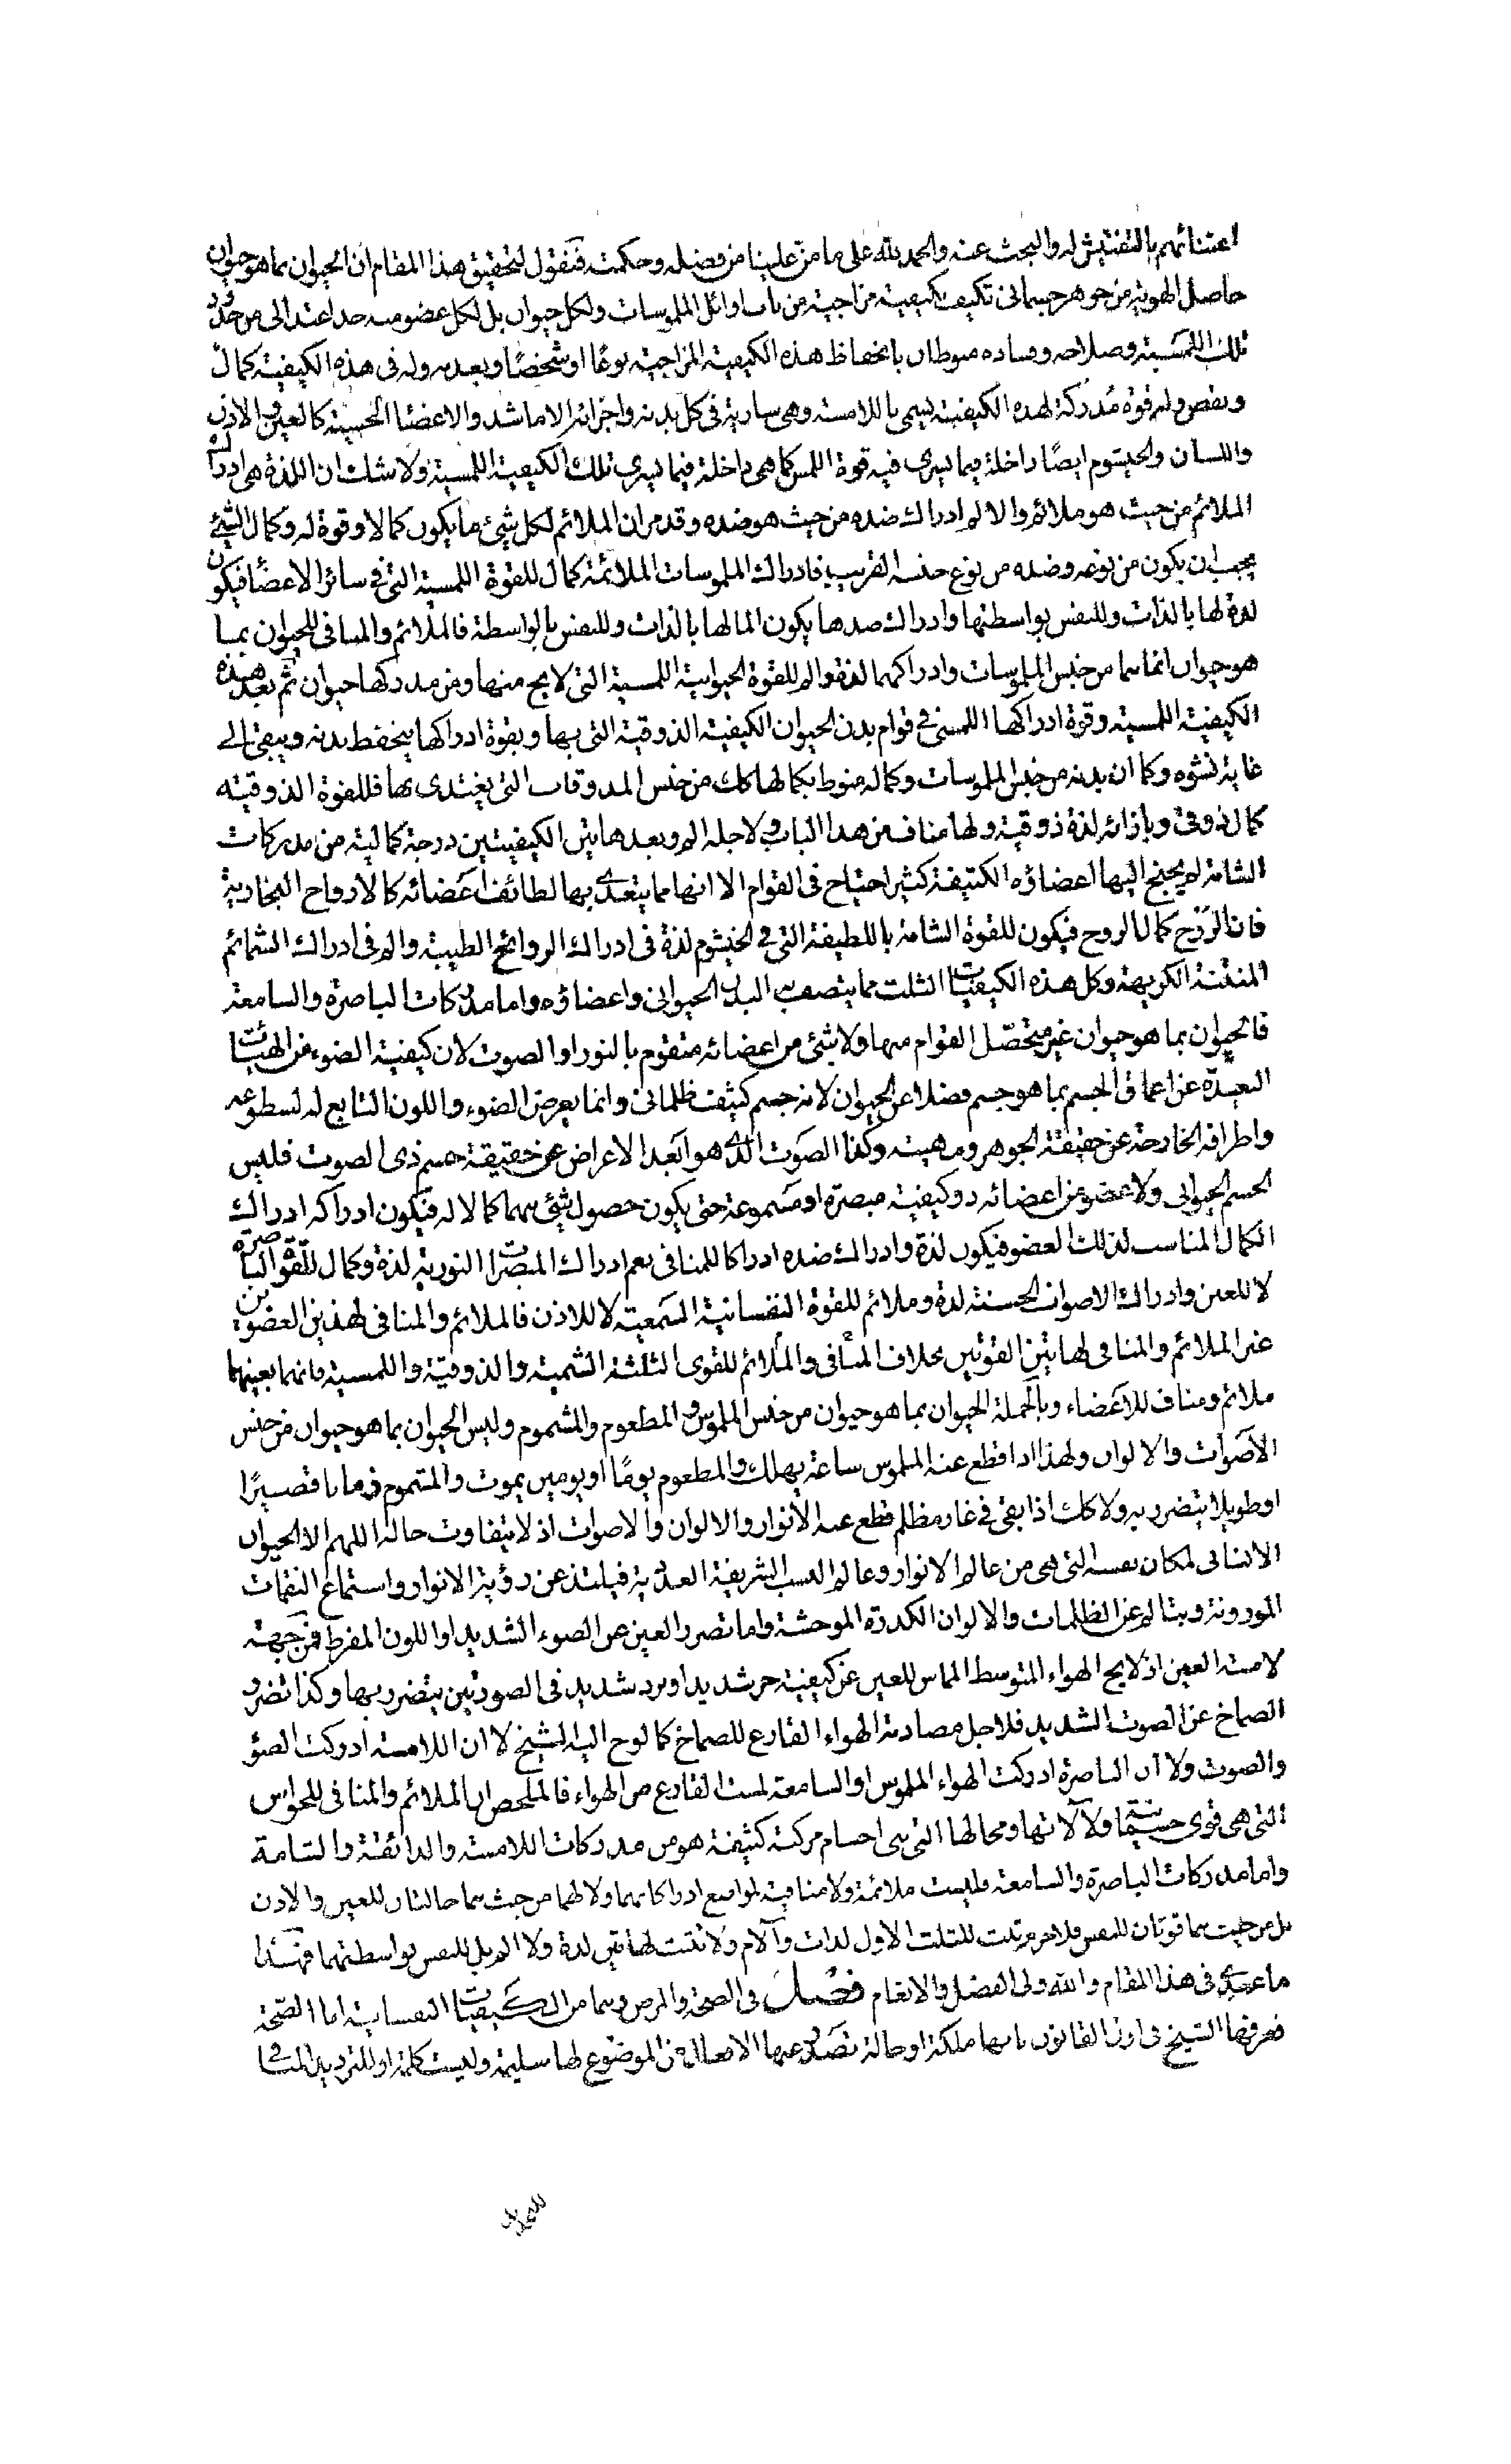 اعتنائهم بالتفتيش له والبحث عنه والحمد لله على ما من علينا من فضله وحكمته فنقول لتحقيق هذا المقام ان الحيوان بما هو حيوان
حاصل الهوية من جوهر جسمانى تكيف بكيفية مزاجية من باب اوائل الملموسات ولكل حيوان بل لكل عضو منه حد اعتدالى من حدود
تلك اللمسية وصلاحه وفساده منوطان بانحفاظ هذه الكيفية المزاجية نوعًا او شخصًا وبعدمه وله فى هذه الكيفية كمال
ونقص وله قوة مُدركة لهذه الكيفية يسمى باللامسة وهى سارية فى كل بدنه واجزائه الا ما شد والاعضا الحسية كالعين والاذن
واللسان والخيشوم ايضًا داخلة فيما يسرى فيه قوة اللمس كما هى داخلة فيما يسرى تلك الكيفية اللمسية ولا شك ان اللذة هى ادراك
الملائم من حيث هو ملائم والالم ادراك ضده من حيث هو ضده وقد مر ان الملائم لكل شئ ما يكون كمالا وقوة له وكمال الشئ
يجب ان يكون من نوعه وضده من نوع جنسه القريب فادراك الملموسات الملائمة كمال للقوة اللمسية التى فى سائر الاعضا فيكون
لذة لها بالذات وللنفس بواسطتها وادراك ضدها يكون الما لها بالذات وللنفس بالواسطة فالملائم والمنافى للحيوان بما
هو حيوان انما هما من جنس الملموسات وادراكهما لذة والم للقوة الحيوانية اللمسية التى لا يخ منها ومن مدركها حيوان ثم بعد هذه
الكيفية اللمسية وقوة ادراكها اللمسى فى قوام بدن الحيوان الكيفية الذوقية التى بها وبقوة ادراكها ينحفظ بدنه ويبقى الى
غاية نشوه وكما ان بدنه من جنس الملموسات وكماله منوط بكمالها كك من جنس المذوقات التى يغتذى بها فللقوة الذوقية
كمال ذوقى وبازائه لذة ذوقية ولها مناف من هذا الباب ولاجله الم وبعد هاتين الكيفيتين درجة كمالية من مدركات
الشامة لم يحتج اليها اعضاؤه الكثيفة كثير احتياج فى القوام الا انها مما يتغذى بها لطائف اعضائه كالارواح البخارية
فان الرّيح كمال الروح فيكون للقوة الشامة باللطيفة التى فى الخيشوم لذة فى ادراك الروائح الطيبة والم فى ادراك الشمائم
المنتنة الكريهة وكل هذه الكيفيات الثلث مما يتصف به البدن الحيوانى واعضاؤه واما مدركات الباصرة والسامعة
فالحيوان بما هو حيوان غير متحصّل القوام منها ولا شئ من اعضائه متقوم بالنور او الصوت لان كيفية الضوء من الهيئات
البعيدة عن اعماق الجسم بما هو جسم فضلا عن الحيوان لانه جسم كثيف ظلمانى وانما يعرض الضوء واللون التابع له لسطوحه
واطرافه الخارجة عن حقيقة الجوهر ومهيته وكذا الصوت الذى هو ابعد الاعراض عن حقيقة جسم ذى الصوت فليس
الجسم الحيوانى ولا عضو من اعضائه ذو كيفية مبصرة او مسموعة حتى يكون حصول شئ منهما كمالا له فيكون ادراكه ادراك
الكمال المناسب لذلك العضو فيكون لذة وادراك ضده ادراكا للمنافى نعم ادراك المبصرات النورية لذة وكمال للقوة الباصرة
لا للعين وادراك الاصوات الحسنة لذة وملائم للقوة النفسانية السمعية لا للاذن فالملائم والمنافى لهذين العضوين
غير الملائم والمنافى لهاتين القوتين بخلاف المنافى والملائم للقوى الثلثة الشمية والذوقية واللمسية فانهما بعينهما
ملائم ومناف للاعضاء وبالجملة الحيوان بما هو حيوان من جنس الملموس والمطعوم والمشموم وليس الحيوان بما هو حيوان من جنس
الاصوات والالوان ولهذا اذا قطع عنه الملموس ساعة يهلك والمطعوم يومًا او يومين يموت والمشموم زمانا قصيرًا
او طويلا يتضرر به ولا كك اذا بقى فى غار مظلم قطع عنه الانوار والالوان والاصوات اذ لا يتفاوت حاله اللهم الا الحيوان
الانسانى لمكان نفسه التى هى من عالم الانوار وعالم النسب الشريفة العددية فيلتذ عن رؤية الانوار واستماع النغمات
الموزونة ويتالم عن الظلمات والالوان الكدرة الموحشة واما تضرر العين عن الضوء الشديد او اللون المفرط فمن جهة
لامسة العين اذ لا يخ الهواء المتوسط المماس للعين عن كيفية حر شديد او برد شديد فى الصورتين يتضرر بها وكذا تضرر
الصماخ عن الصوت الشديد فلاجل مصادمة الهواء القارع للصماخ كما لوح اليه الشيخ لا ان اللامسة ادركت الضوء
والصوت ولا ان الباصرة ادركت الهواء الملموس او السامعة لمست القارع من الهواء فالملخص ان الملائم والمنافى للحواس
التى هى قوى جسمانية ولآلاتها ومحالها التى هى اجسام مركبة كثيفة هو من مدركات اللامسة والذائقة والشامة
واما مدركات الباصرة والسامعة فليست ملائمة ولا منافية لمواضع ادراكاتهما ولا لهما من حيث هما حالتان للعين والاذن
بل من حيث هما قوتان للنفس فلا جرم ثبت للثلث الاول لذات وآلام ولا ثبت لهاتين لذة ولا الم بل للنفس بواسطتهما فهذا
ما عندى فى هذا المقام والله ولى الفضل والانعام فصل فى الصحة والمرض وهما من الكيفيات النفسانية اما الصّحة
فعرفها الشيخ فى اول القانون بانها ملكة او حالة تصدر عنها الافعال من الموضوع لها سليمة وليست كلمة او للترديد المنافى